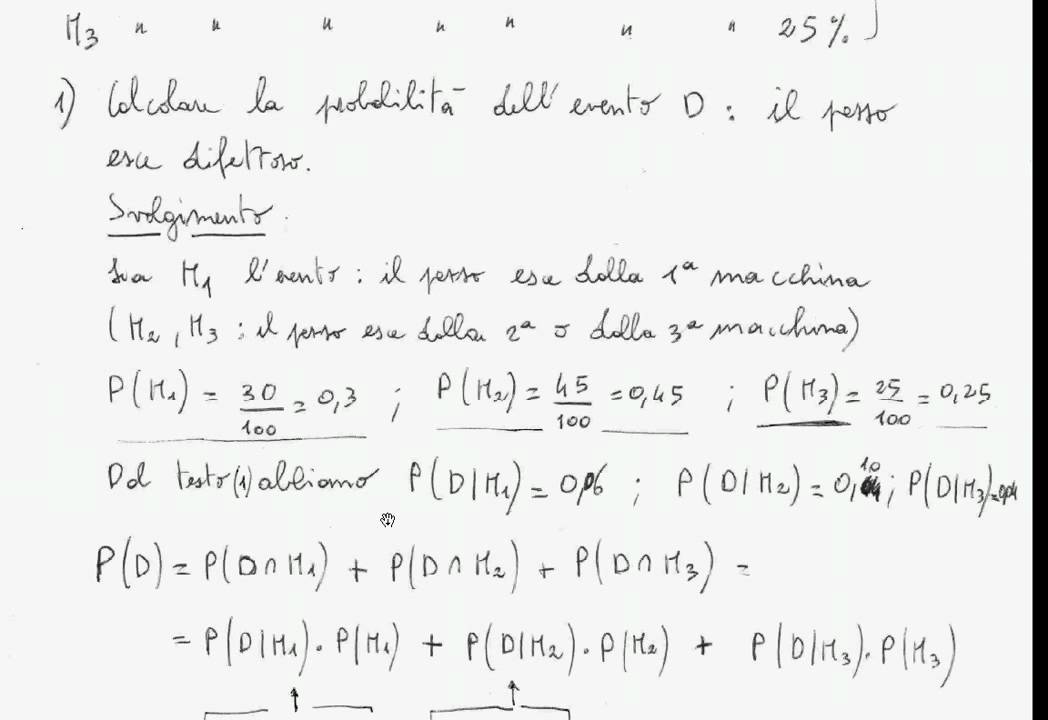 M3 " " " " " " " 25%
1) Calcolare la probabilità dell'evento D : il pezzo
esce difettoso.
Svolgimento.
Sia M1 l'evento : il pezzo esce dalla 1ª macchina
(M2 , M3 : il pezzo esce dalla 2ª o dalla 3ª macchina)
P(M1) = 30/100 = 0,3 ; P(M2) = 45/100 = 0,45 ; P(M3) = 25/100 = 0,25
Dal testo (1) abbiamo P(D|M1) = 0,06 ; P(D|M2) = 0,10 ; P(D|M3) = 0,04
P(D) = P(D∩M1) + P(D∩M2) + P(D∩M3) =
= P(D|M1)·P(M1) + P(D|M2)·P(M2) + P(D|M3)·P(M3)